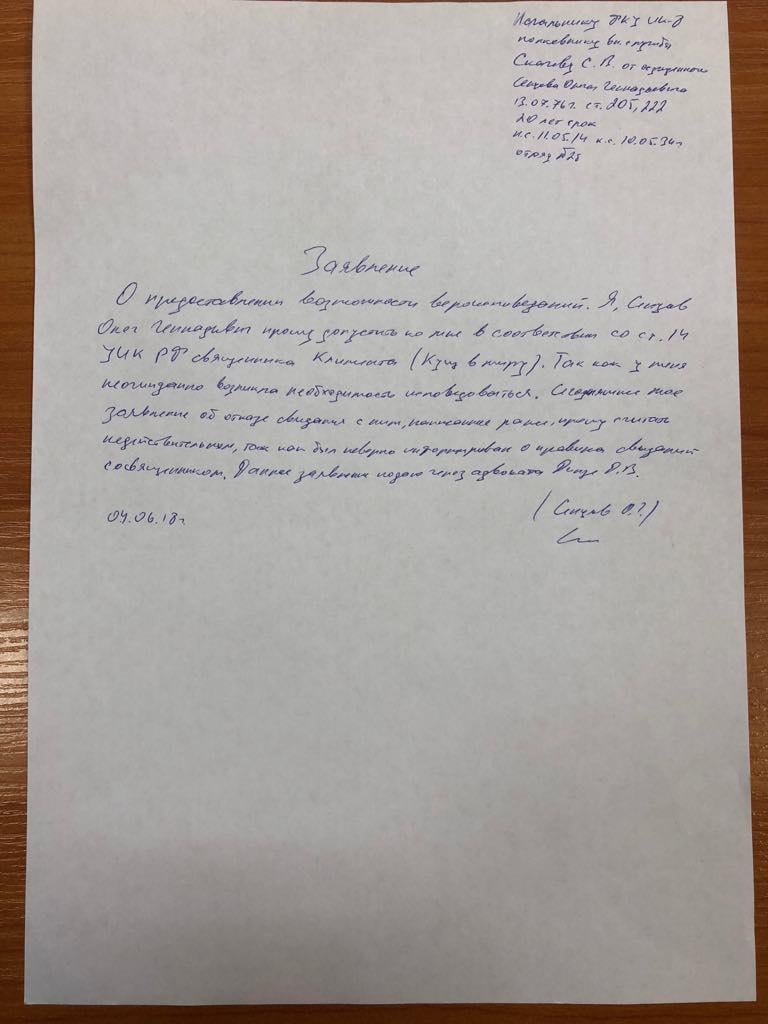 Начальнику ФКУ ИК-8
полковнику вн. службы
С. В. от осужденного
Сенцова Олега Геннадьевича
13.07.76 г. ст. 205, 222
20 лет срок
н.с. 11.05.14 к.с. 10.05.34 г
отряд
Заявление
О предоставлении возможности вероисповеданий. Я, Сенцов
Олег Геннадьевич прошу допустить ко мне в соответствии со ст. 14
УИК РФ священника Климента (Кущ в миру). Так как у меня
неожиданно возникла необходимость исповедоваться. мое
заявление об отказе свидания с ним, написанное ранее, прошу считать
недействительным, так как был неверно информирован о правилах свиданий
со священником. Данное заявление подаю через адвоката Динзе Д.В.
04.06.18 г
(Сенцов О.Г.)